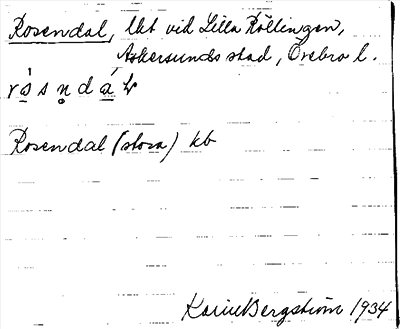 Rosendal, lht vid Lilla Källingen,
Askersunds stad, Örebro l.
Rosendal (stora) kb
Karin Bergström 1934